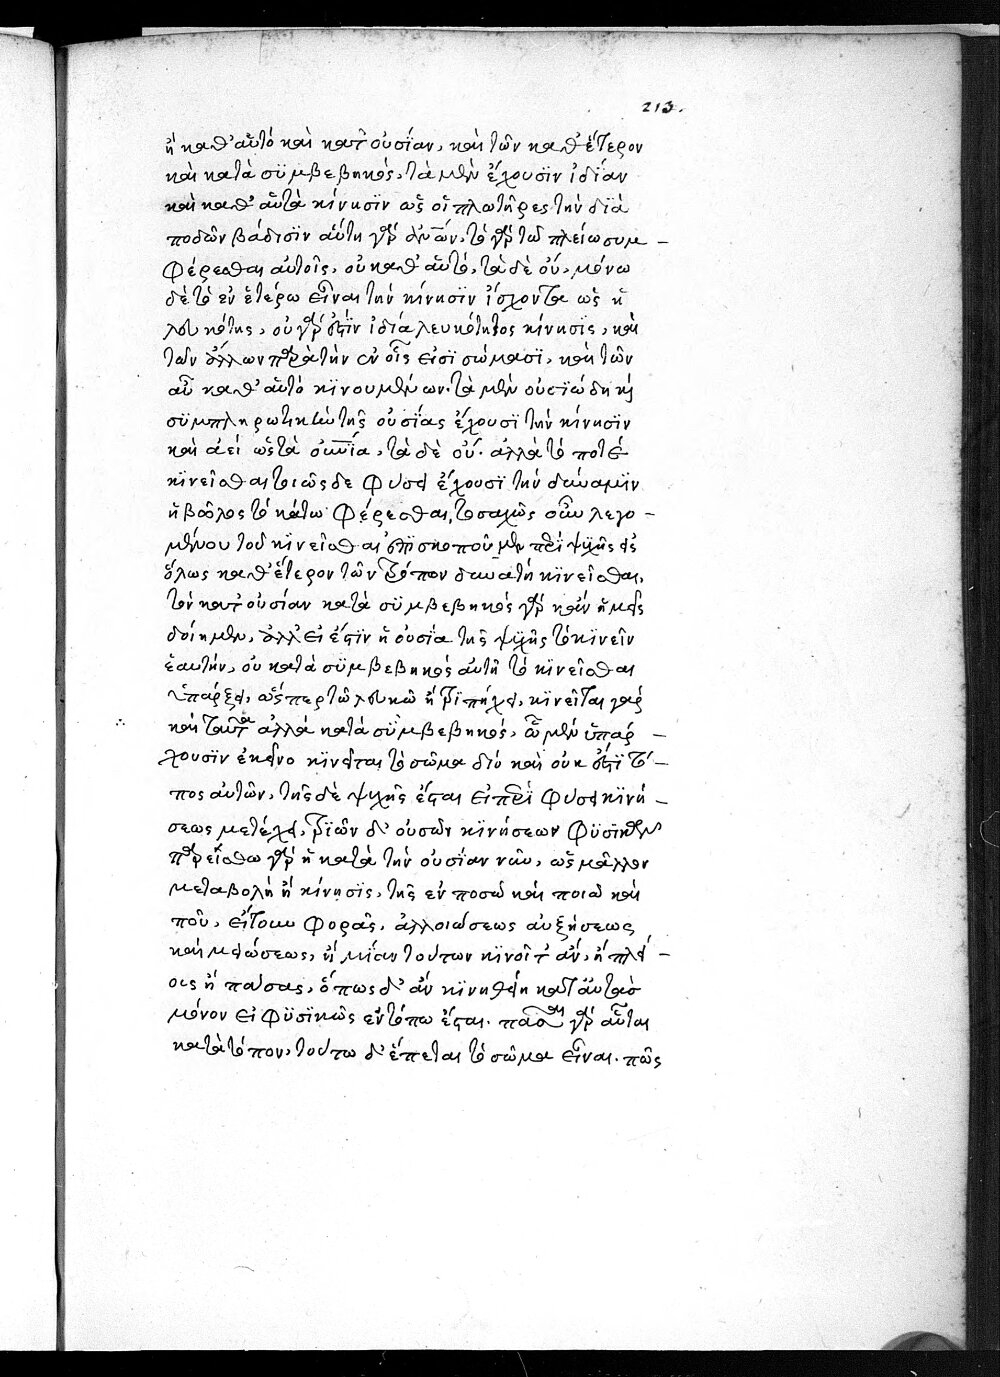 213.
ἢ καθ' αὑτὸ καὶ κατ' οὐσίαν, καὶ τῶν καθ' ἕτερον
καὶ κατὰ συμβεβηκός, τὰ μὲν ἔχουσιν ἰδίαν
καὶ καθ' αὑτὰ κίνησιν ὡς οἱ πλωτῆρες τὴν διὰ
ποδῶν βάδισιν αὕτη γὰρ ἀνων, τὸ γὰρ τῷ πλείω συμ-
φέρεσθαι αὐτοῖς, οὐ καθ' αὑτό, τὰ δὲ οὔ, μόνω
δὲ τὸ ἐν ἑτέρω εἶναι τὴν κίνησιν ἴσχοντα ὡς ἡ
λευκότης, οὐ γάρ ἐστιν ἰδία λευκότητος κίνησις, καὶ
τῶν ἄλλων παρὰ τὴν ἐν οἷς εἰσὶ σώμασι, καὶ τῶν
αὖ καθ' αὑτὸ κινουμένων. τὰ μὲν οὐσιώδη κὶ
συμπληρωτικὴν τῆς οὐσίας ἔχουσι τὴν κίνησιν
καὶ ἀεί ὡς τὰ οὐνια, τὰ δὲ οὔ. ἀλλὰ τὸ ποτὲ
κινεῖσθαι τιῶς δε φύσει ἔχουσι τὴν δύναμιν
ἡ βῶλος τὸ κάτω φέρεσθαι, τοσαχῶς οὖν λεγο-
μένου τοῦ κινεῖσθαι ἐπισκοποῦμεν περὶ ψυχῆς εἰ
ὅλως καθ' ἕτερον τῶν τρόπον δυνατὴ κινεῖσθαι,
τὸν κατ' οὐσίαν κατὰ συμβεβηκὸς γὰρ κἂν ἡμεῖς
δοίημεν, ἀλλ' εἰ ἔστιν ἡ οὐσία τῆς ψυχῆς τὸ κινεῖν
ἑαυτήν, οὐ κατὰ συμβεβηκὸς αὐτῆ τὸ κινεῖσθαι
ὑπάρξει, ὥσπερ τῶ λευκῶ ἢ τριπήχει, κινεῖται γὰρ
καὶ ταῦτα ἀλλὰ κατὰ συμβεβηκός, ὧ μὲν ὑπάρ-
χουσιν ἐκεῖνο κινεῖται τὸ σῶμα διὸ καὶ οὐκ ἔστι τό-
πος αὐτῶν, τῆς δὲ ψυχῆς ἔσται εἴπερ φύσει κινή-
σεως μετέχει, τριῶν δ' οὐσῶν κινήσεων φυσικῶν
παρείσθω γὰρ ἡ κατὰ τὴν οὐσίαν νῦν, ὡς μᾶλλον
μεταβολὴ ἢ κίνησις, τῆς ἐν ποσῶ καὶ ποιῶ καὶ
ποῦ, εἴτουν φορᾶς, ἀλλοιώσεως αὐξήσεως
καὶ μειώσεως, ἢ μίαν τούτων κινοῖτ' ἄν, ἢ πλεί-
ους ἢ πάσας, ὅπως δ' ἂν κινηθείη κατ' αὐτὰς
μόνον εἰ φυσικῶς ἐν τόπω ἔσται. πᾶσαι γὰρ αὗται
κατὰ τόπον, τούτω δ' ἕπεται τὸ σῶμα εἶναι. πῶς